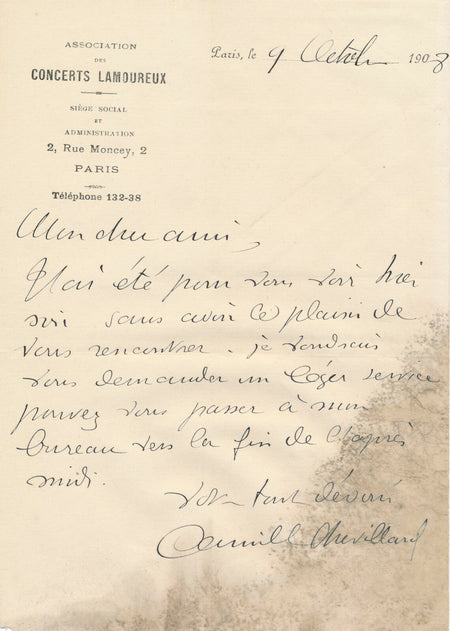 ASSOCIATION
DES
CONCERTS LAMOUREUX
SIÈGE SOCIAL
ET
ADMINISTRATION
2, Rue Moncey, 2
PARIS
Téléphone 132-38
Paris, le 9 Octobre 1908
Mon cher ami,
J'ai été pour vous voir hier
soir sans avoir le plaisir de
vous rencontrer. je voudrais
vous demander un léger service
pouvez vous passer à mon
bureau vers la fin de l'après
midi.
Votre tout dévoué
Camille Chevillard